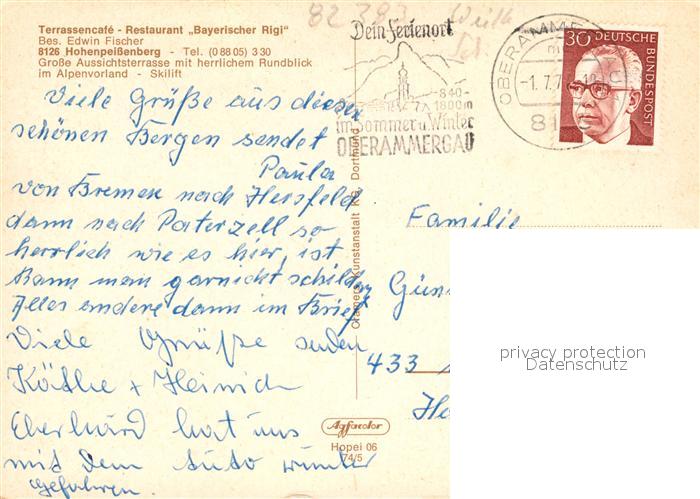 Terrassencafé - Restaurant „Bayerischer Rigi"
Bes. Edwin Fischer
8126 Hohenpeißenberg - Tel. (0 88 05) 3 30
Große Aussichtsterrasse mit herrlichem Rundblick
im Alpenvorland - Skilift
82 393
Dein Ferienort
840-
1800m
im Sommer u. Winter
OBERAMMERGAU
OBERAMME
-1.7.7
81
30 DEUTSCHE
BUNDESPOST
Viele Grüße aus diesen
schönen Bergen sendet
Paula
von Bremen nach Hersfeld
dann nach Paterzell so
herrlich wie es hier, ist
kann man garnicht schildern
Alles andere dann im Brief
Viele Grüße senden
Käthe + Heinrich
Eberhard hat uns
mit dem Auto
gefahren.
Cramers Kunstanstalt KG, Dortmund
Familie
Gün
433
He
Agfacolor
Hopei 06
74/5
privacy protection
Datenschutz